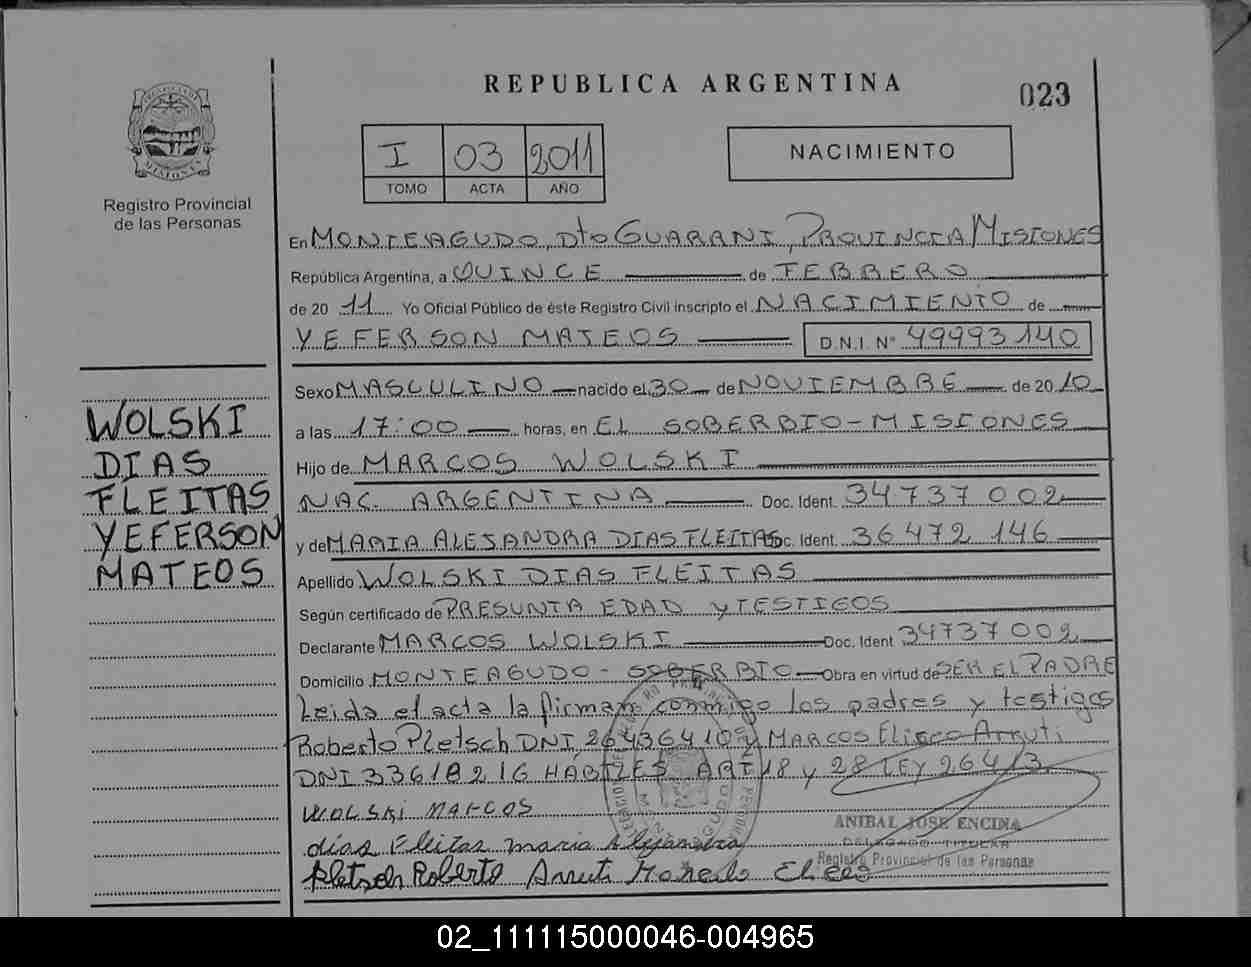 REPUBLICA ARGENTINA
023
I 03 2011
TOMO ACTA AÑO
NACIMIENTO
MISIONES
Registro Provincial
de las Personas
En MONTEAGUDO, Dto GUARANI, PROVINCIA MISIONES
República Argentina, a QUINCE de FEBRERO
de 20 11 Yo Oficial Público de éste Registro Civil inscripto el NACIMIENTO de
YEFERSON MATEOS D.N.I. N° 49993140
Sexo MASCULINO nacido el 30 de NOVIEMBRE de 20 10
a las 17:00 horas, en EL SOBERBIO - MISIONES
Hijo de MARCOS WOLSKI
NAC. ARGENTINA Doc. Ident. 34737002
y de MARIA ALEJANDRA DIAS FLEITAS Doc. Ident. 36472146
Apellido WOLSKI DIAS FLEITAS
Según certificado de PRESUNTA EDAD y TESTIGOS
Declarante MARCOS WOLSKI Doc. Ident 34737002
Domicilio MONTEAGUDO - SOBERBIO Obra en virtud de SER EL PADRE
Leida el acta la firman conmigo los padres y testigos
Roberto Pletsch DNI 26436410 y MARCOS Arruti
DNI 33618216 HÁBILES ART 18 y 28 LEY 26413
WOLSKI MARCOS
dias Fleitas maria Alejandra
Pletsch Roberto Arruti
WOLSKI
DIAS
FLEITAS
YEFERSON
MATEOS
ANIBAL JOSE ENCINA
DELEGADO TITULAR
Registro Provincial de las Personas
02_111115000046-004965